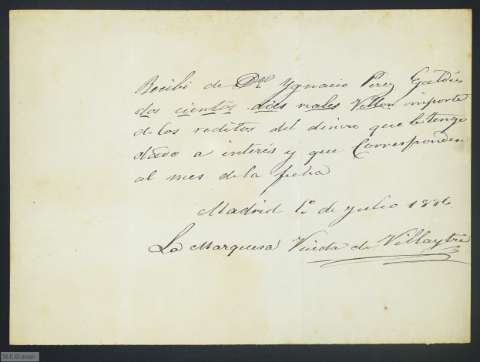 Recibi de Dn Ygnacio Perez Galdós
dos cientos diez reales Vellon importe
de los reditos del dinero que le tengo
dado a interés y que Corresponden
al mes de la fecha
Madrid 1º de Julio
La Marquesa Viuda de